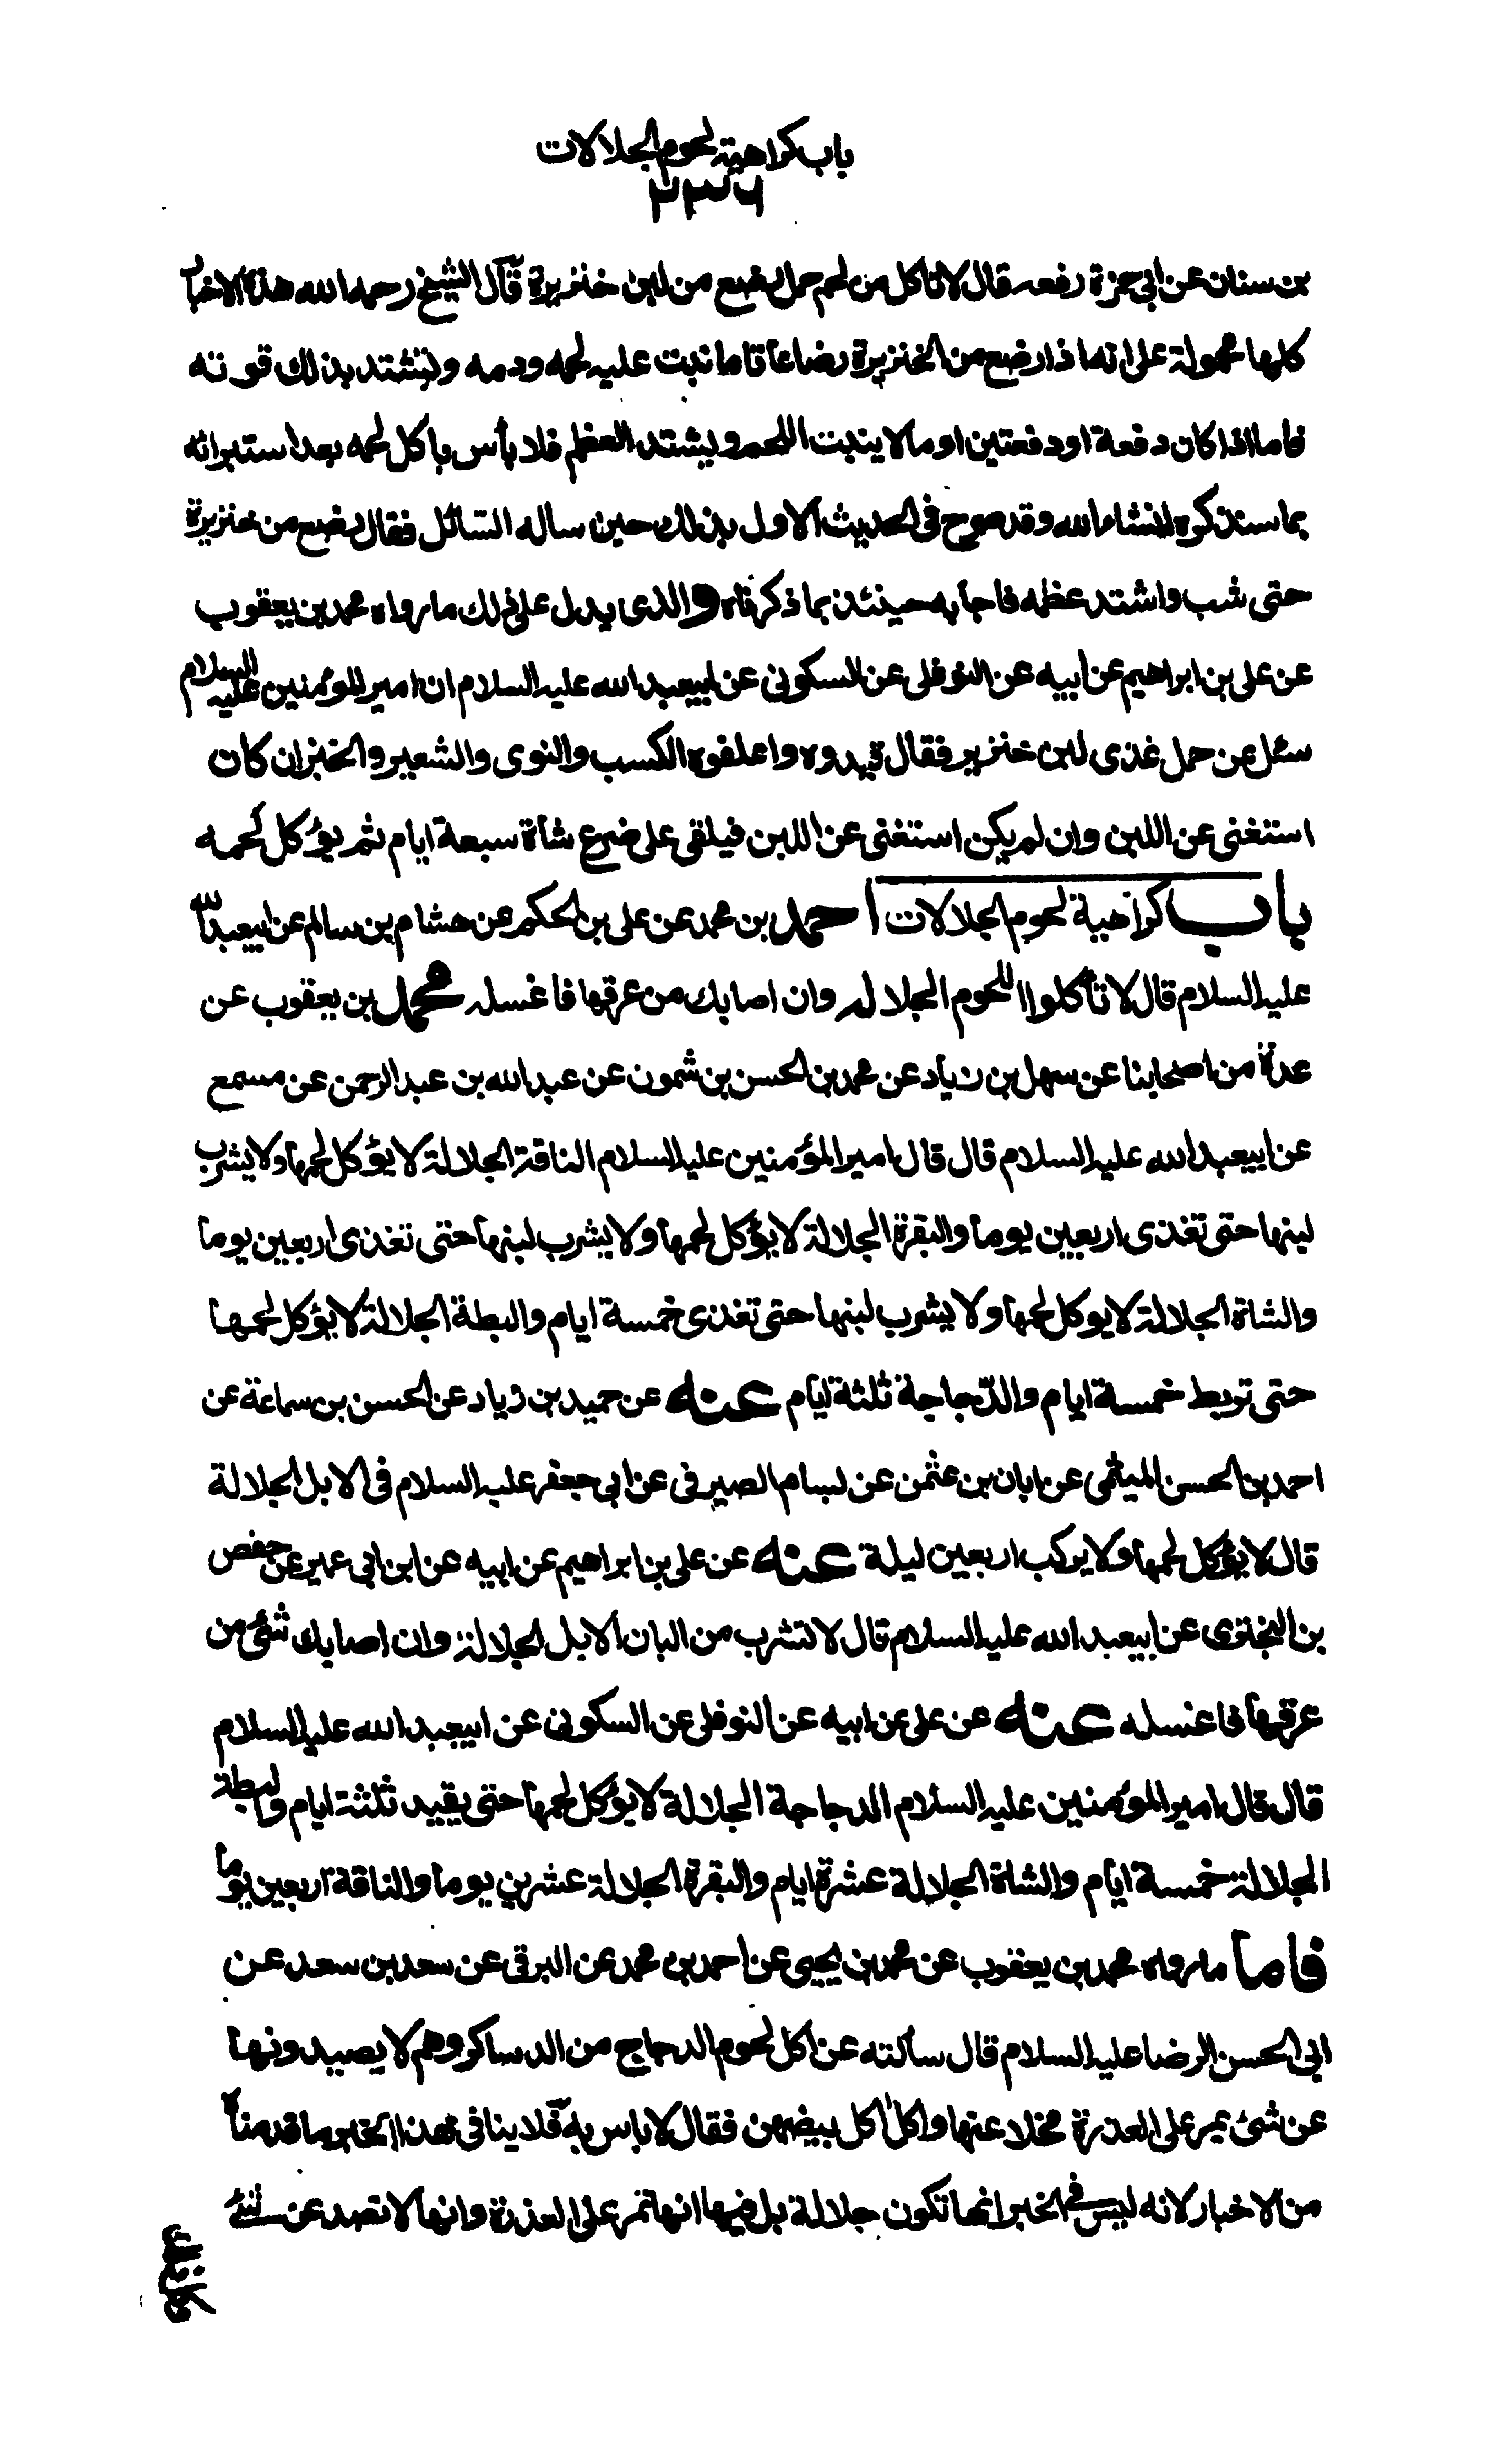 باب كراهية لحوم الجلالات
٢٣٦
بن سنان عن ابي حمزة رفعه قال لا تاكل من لحم حمل رضع من لبن خنزيرة قال الشيخ رحمه الله هذه الاخبار
كلها محمولة على انه اذا رضع من الخنزيرة رضاعا تاما نبت عليه لحمه ودمه وتشتد بذلك قوته
فاما اذا كان دفعة او دفعتين او ما لا ينبت اللحم ويشتد العظم فلا بأس باكل لحمه بعد استبرائه
بما سنذكره انشاء الله وقد صرح في الحديث الاول بذلك حين ساله السّائل فقال رضع من خنزيرة
حتى شب واشتد عظمه فاجابه حينئذ بما ذكرناه والذى يدل على ذلك ما رواه محمد بن يعقوب
عن على بن ابراهيم عن ابيه عن النوفلى عن السكونى عن ابيعبد الله عليه السلام ان امير المؤمنين عليه السلام
سئل عن حمل غذى لبن خنزير فقال قيدوه واعلفوه الكسب والنوى والشعير والخبز ان كان
استغنى عن اللبن وان لم يكن استغنى عن اللبن فيلقى على ضرع شاة سبعة ايام ثم يؤكل لحمه
باب كراهية لحوم الجلالات احمد بن محمد عن على بن الحكم عن هشام بن سالم عن ابيعبد الله
عليه السلام قال لا تأكلوا اللحوم الجلاله وان اصابك من عرقها فاغسله محمد بن يعقوب عن
عدة من اصحابنا عن سهل بن زياد عن محمد بن الحسن بن شمون عن عبد الله بن عبد الرحمن عن مسمع
عن ابيعبد الله عليه السلام قال قال امير المؤمنين عليه السلام الناقة الجلالة لا يؤكل لحمها ولا يشرب
لبنها حتى تغذى اربعين يوما والبقرة الجلالة لا يؤكل لحمها ولا يشرب لبنها حتى تغذى اربعين يوما
والشاة الجلالة لا يوكل لحمها ولا يشرب لبنها حتى تغذى خمسة ايام والبطة الجلالة لا يؤكل لحمها
حتى توبط خمسة ايام والدّجاجة ثلثة ايام عنه عن حميد بن زياد عن الحسن بن سماعة عن
احمد بن الحسن الميثمى عن ابان بن عثمن عن بسام الصيرفى عن ابى جعفر عليه السلام فى الابل الجلالة
قال لا يؤكل لحمها ولا يركب اربعين ليلة عنه عن على بن ابراهيم عن ابيه عن ابن ابى عمير عن حفص
بن البخترى عن ابيعبد الله عليه السلام قال لا تشرب من البان الابل الجلالة وان اصابك شئ من
عرقها فاغسله عنه عن على عن ابيه عن النوفلى عن السكونى عن ابيعبد الله عليه السلام
قال قال امير المؤمنين عليه السلام الدجاجة الجلالة لا يؤكل لحمها حتى يقيد ثلثة ايام والبطة
الجلالة خمسة ايام والشاة الجلالة عشرة ايام والبقرة الجلالة عشرين يوما والناقة اربعين يوما
فاما ما رواه محمد بن يعقوب عن محمد بن يحيى عن احمد بن محمد عن البرقى عن سعد بن سعد عن
ابى الحسن الرضا عليه السلام قال سألته عن اكل لحوم الدجاج من الدساكر وهم لا يصيدونها
عن شئ يمر على العذرة مخلا عنها واكل اكل بيضهن فقال لا باس به فلا ينافى هذا الخبر ما قدمناه
من الاخبار لانه ليس فى الخبر انها تكون جلالة بل فيها انها تمر على العذرة وانها لا تصد عن شئ